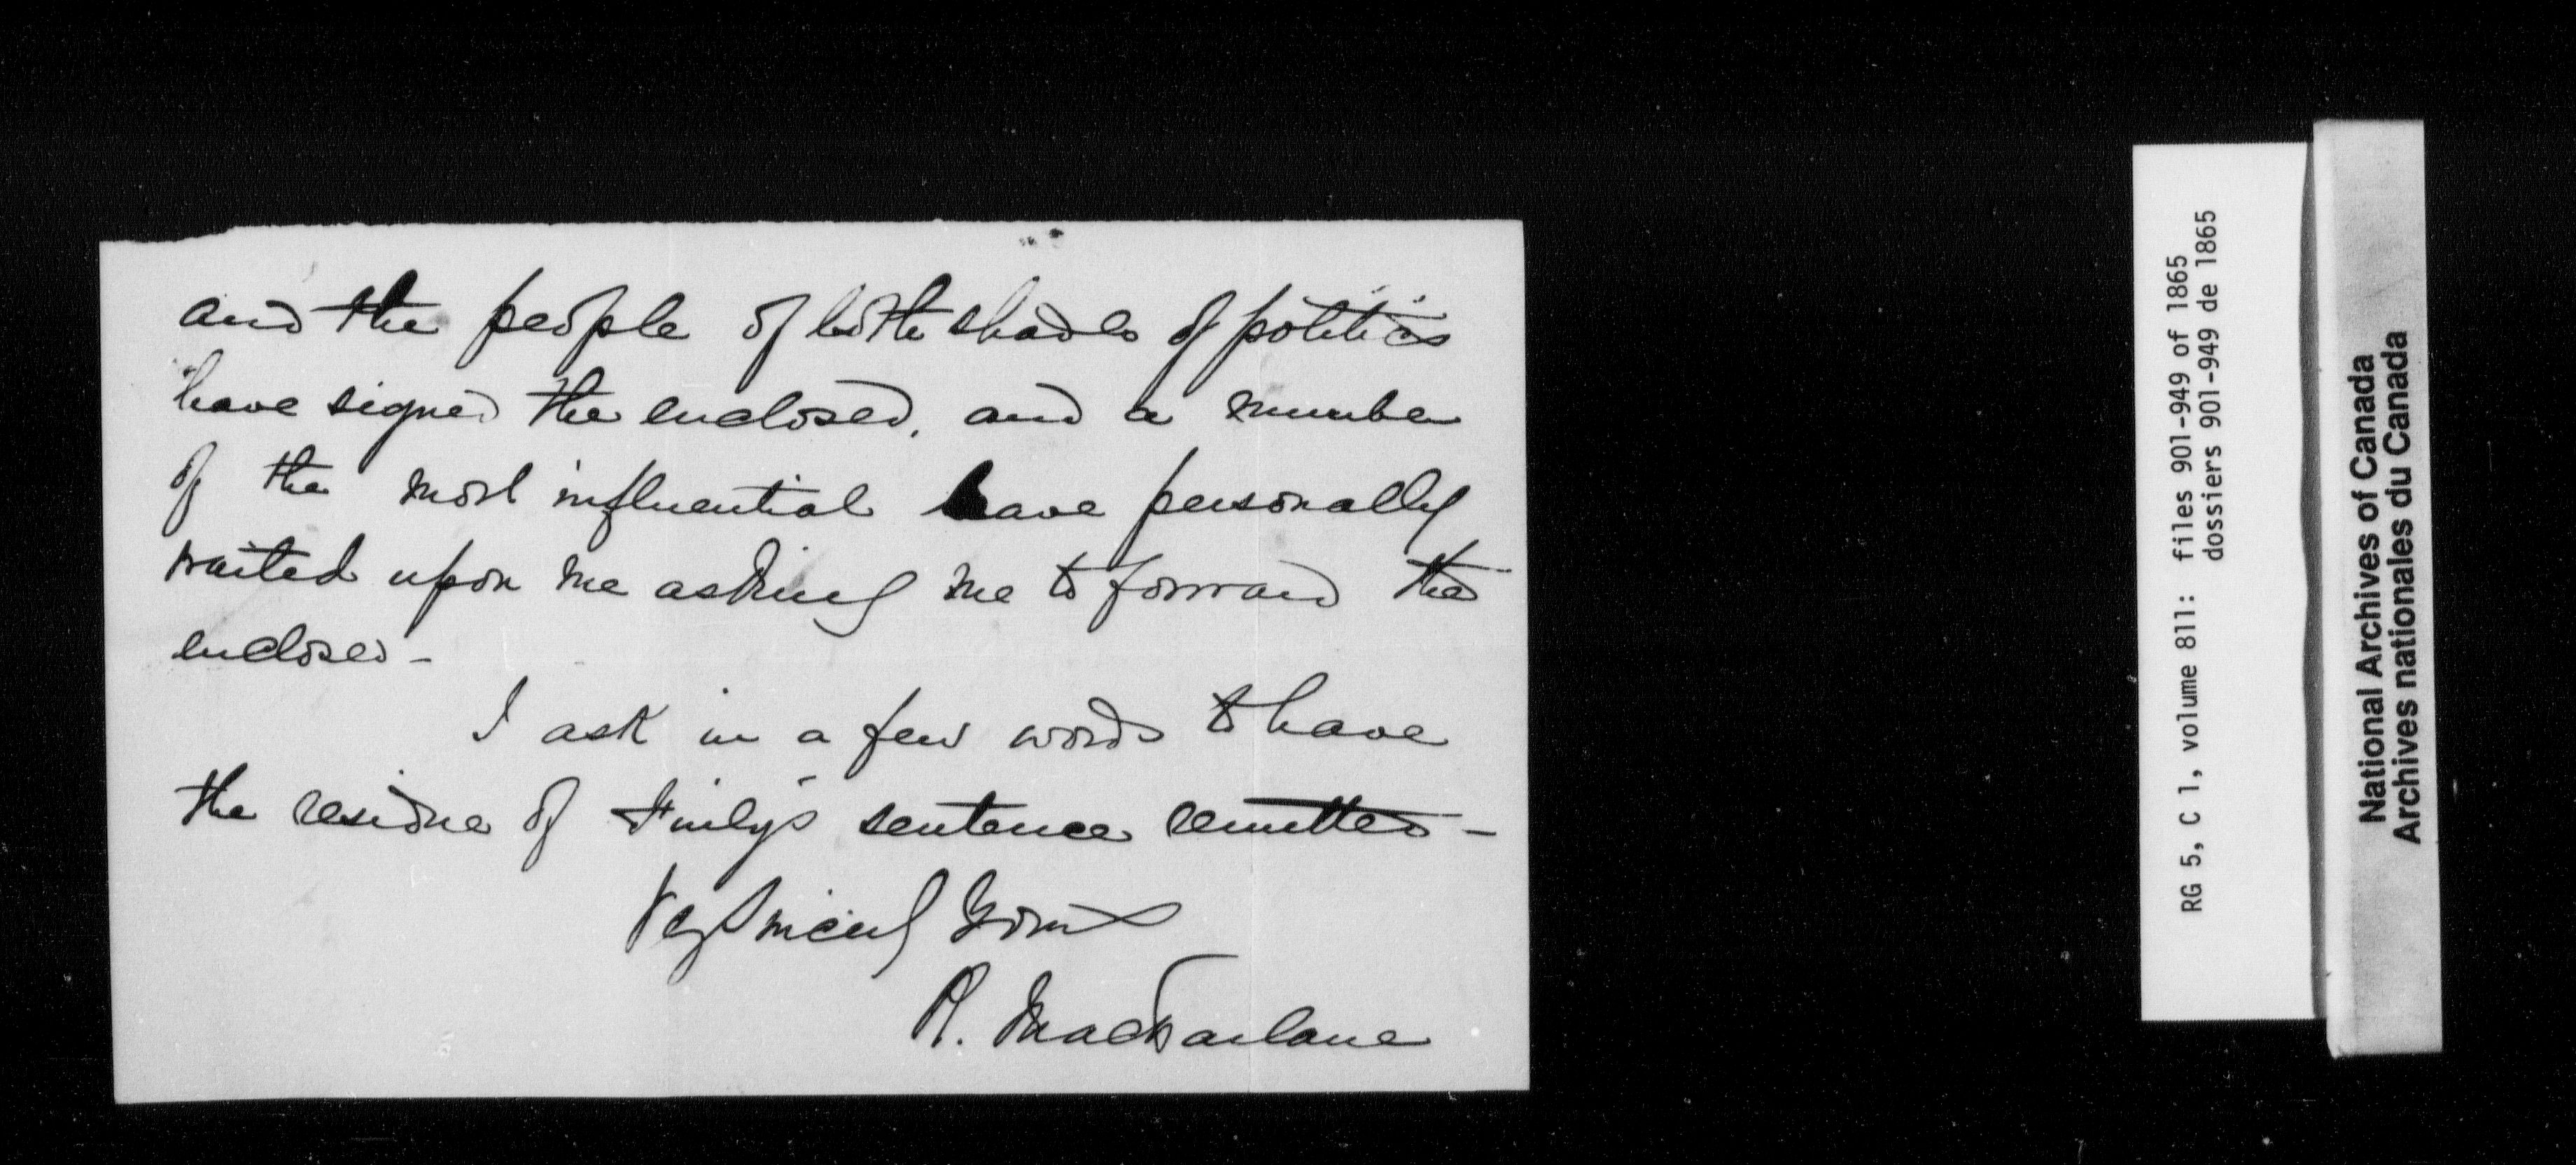 and the people of both shades of politics
have signed the enclosed, and a number
of the most influential have personally
waited upon me asking me to forward the
enclosed -
I ask in a few words to have
the residue of Finly's sentence remitted -
Very Sincerely Yours
R. MacFarlane
RG 5, C 1, volume 811: files 901-949 of 1865
dossiers 901-949 de 1865
National Archives of Canada
Archives nationales du Canada